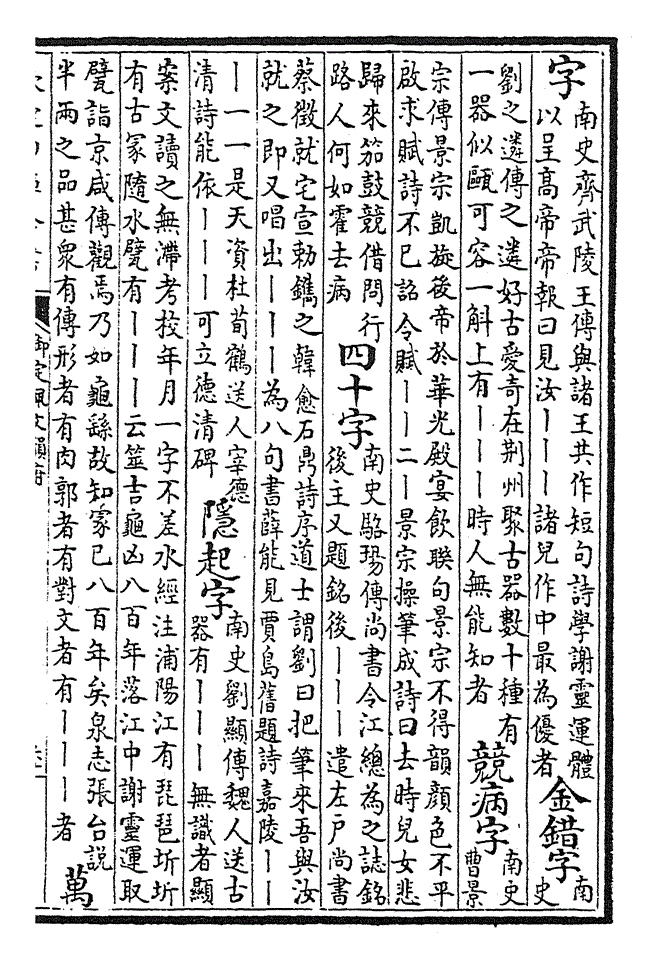 字南史齊武陵王傳與諸王共作短句詩學謝靈運體
以呈高帝帝報曰見汝丨丨丨諸兒作中最為優者金錯字南
史
劉之遴傳之遴好古愛奇在荆州聚古器數十種有
一器似甌可容一斛上有丨丨丨時人無能知者競病字南史
曹景
宗傳景宗凱旋後帝於華光殿宴飲聯句景宗不得韻顔色不平
啟求賦詩不已詔令賦丨丨二丨景宗操筆成詩曰去時兒女悲
歸來笳鼓競借問行
路人何如霍去病四十字南史駱瑒傳尚書令江總為之誌銘
後主又題銘後丨丨丨遣左户尚書
蔡徵就宅宣勅鐫之韓愈石鼎詩序道士謂劉曰把筆來吾與汝
就之即又唱出丨丨丨為八句書薛能見賈島舊題詩嘉陵丨丨
丨一一是天資杜荀鶴送人宰德
清詩能依丨丨丨可立德清碑隱起字南史劉顯傳魏人送古
器有丨丨丨無識者顯
案文讀之無滯考校年月一字不差水經注浦陽江有琵琶圻圻
有古冢隨水甓有丨丨丨云筮吉龜凶八百年落江中謝靈運取
甓詣京咸傳觀焉乃如龜繇故知冢已八百年矣泉志張台說
半兩之品甚衆有傳形者有肉郭者有對文者有丨丨丨者萬
御定佩文韻府